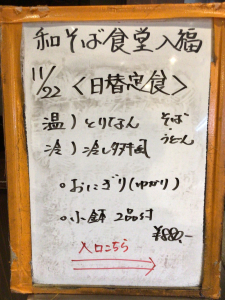 和そば食堂 入福
11/22 〈日替定食〉
温)とりなん そば
冷)冷し うどん
◦おにぎり(ゆかり)
◦小鉢 2品付
¥880-
入口こちら